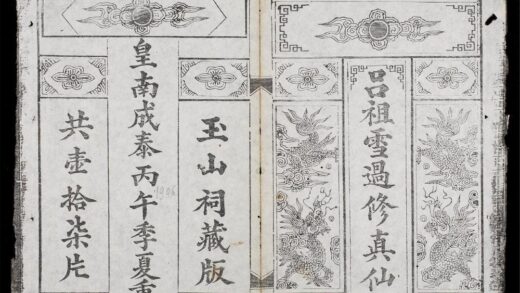 呂祖雪過修真仙
玉山祠藏版
皇南成泰丙午季夏重
1906
共壹拾柒片